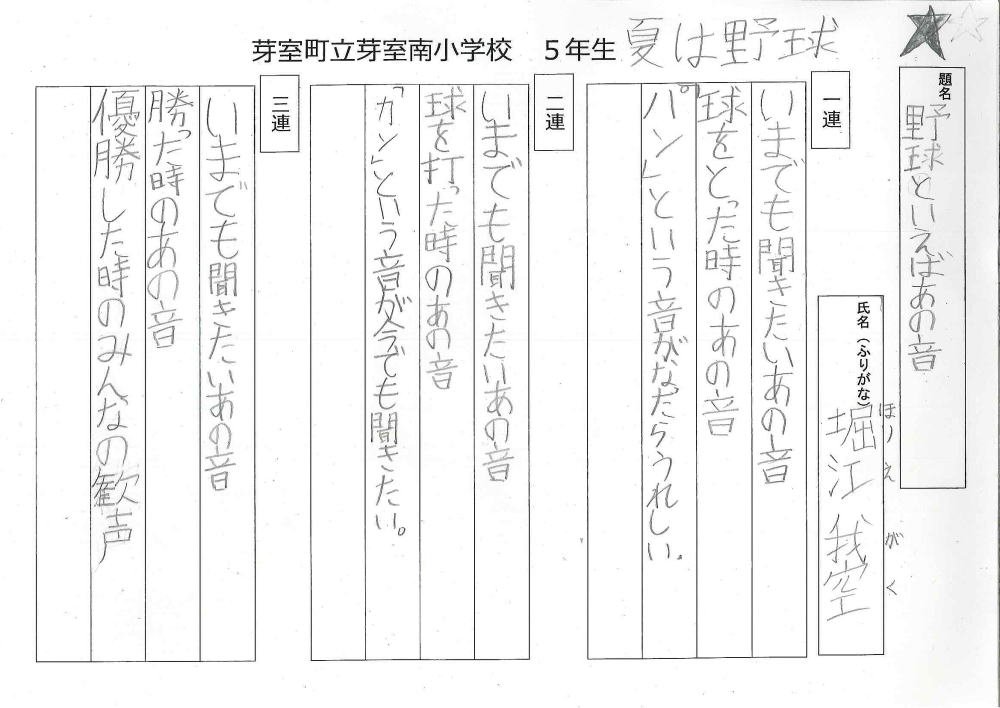 芽室町立芽室南小学校　５年生
夏は野球
題名
野球といえばあの音
氏名（ふりがな）
堀江我空
ほりえ がく
一連
いまでも聞きたいあの音
球をとった時のあの音
「パン」という音がなったらうれしい。
二連
いまでも聞きたいあの音
球を打った時のあの音
「カン」という音が今でも聞きたい。
三連
いまでも聞きたいあの音
勝った時のあの音
優勝した時のみんなの歓声